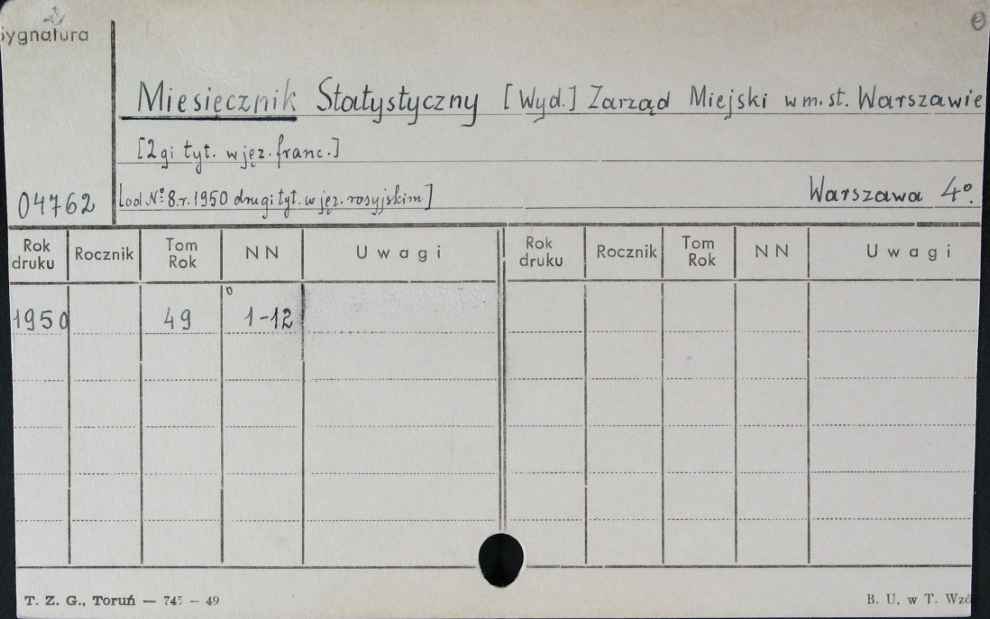 Sygnatura
Miesięcznik Statystyczny [Wyd.] Zarząd Miejski w m. st. Warszawie
[2gi tyt. w jęz. franc.]
04762 [od Nº 8. r. 1950 drugi tyt. w jęz. rosyjskim] Warszawa 4º.
Rok druku Rocznik Tom Rok NN Uwagi Rok druku Rocznik Tom Rok NN Uwagi
1950 49 1-12
T. Z. G., Toruń — 745 — 49 B. U. w T. Wzó